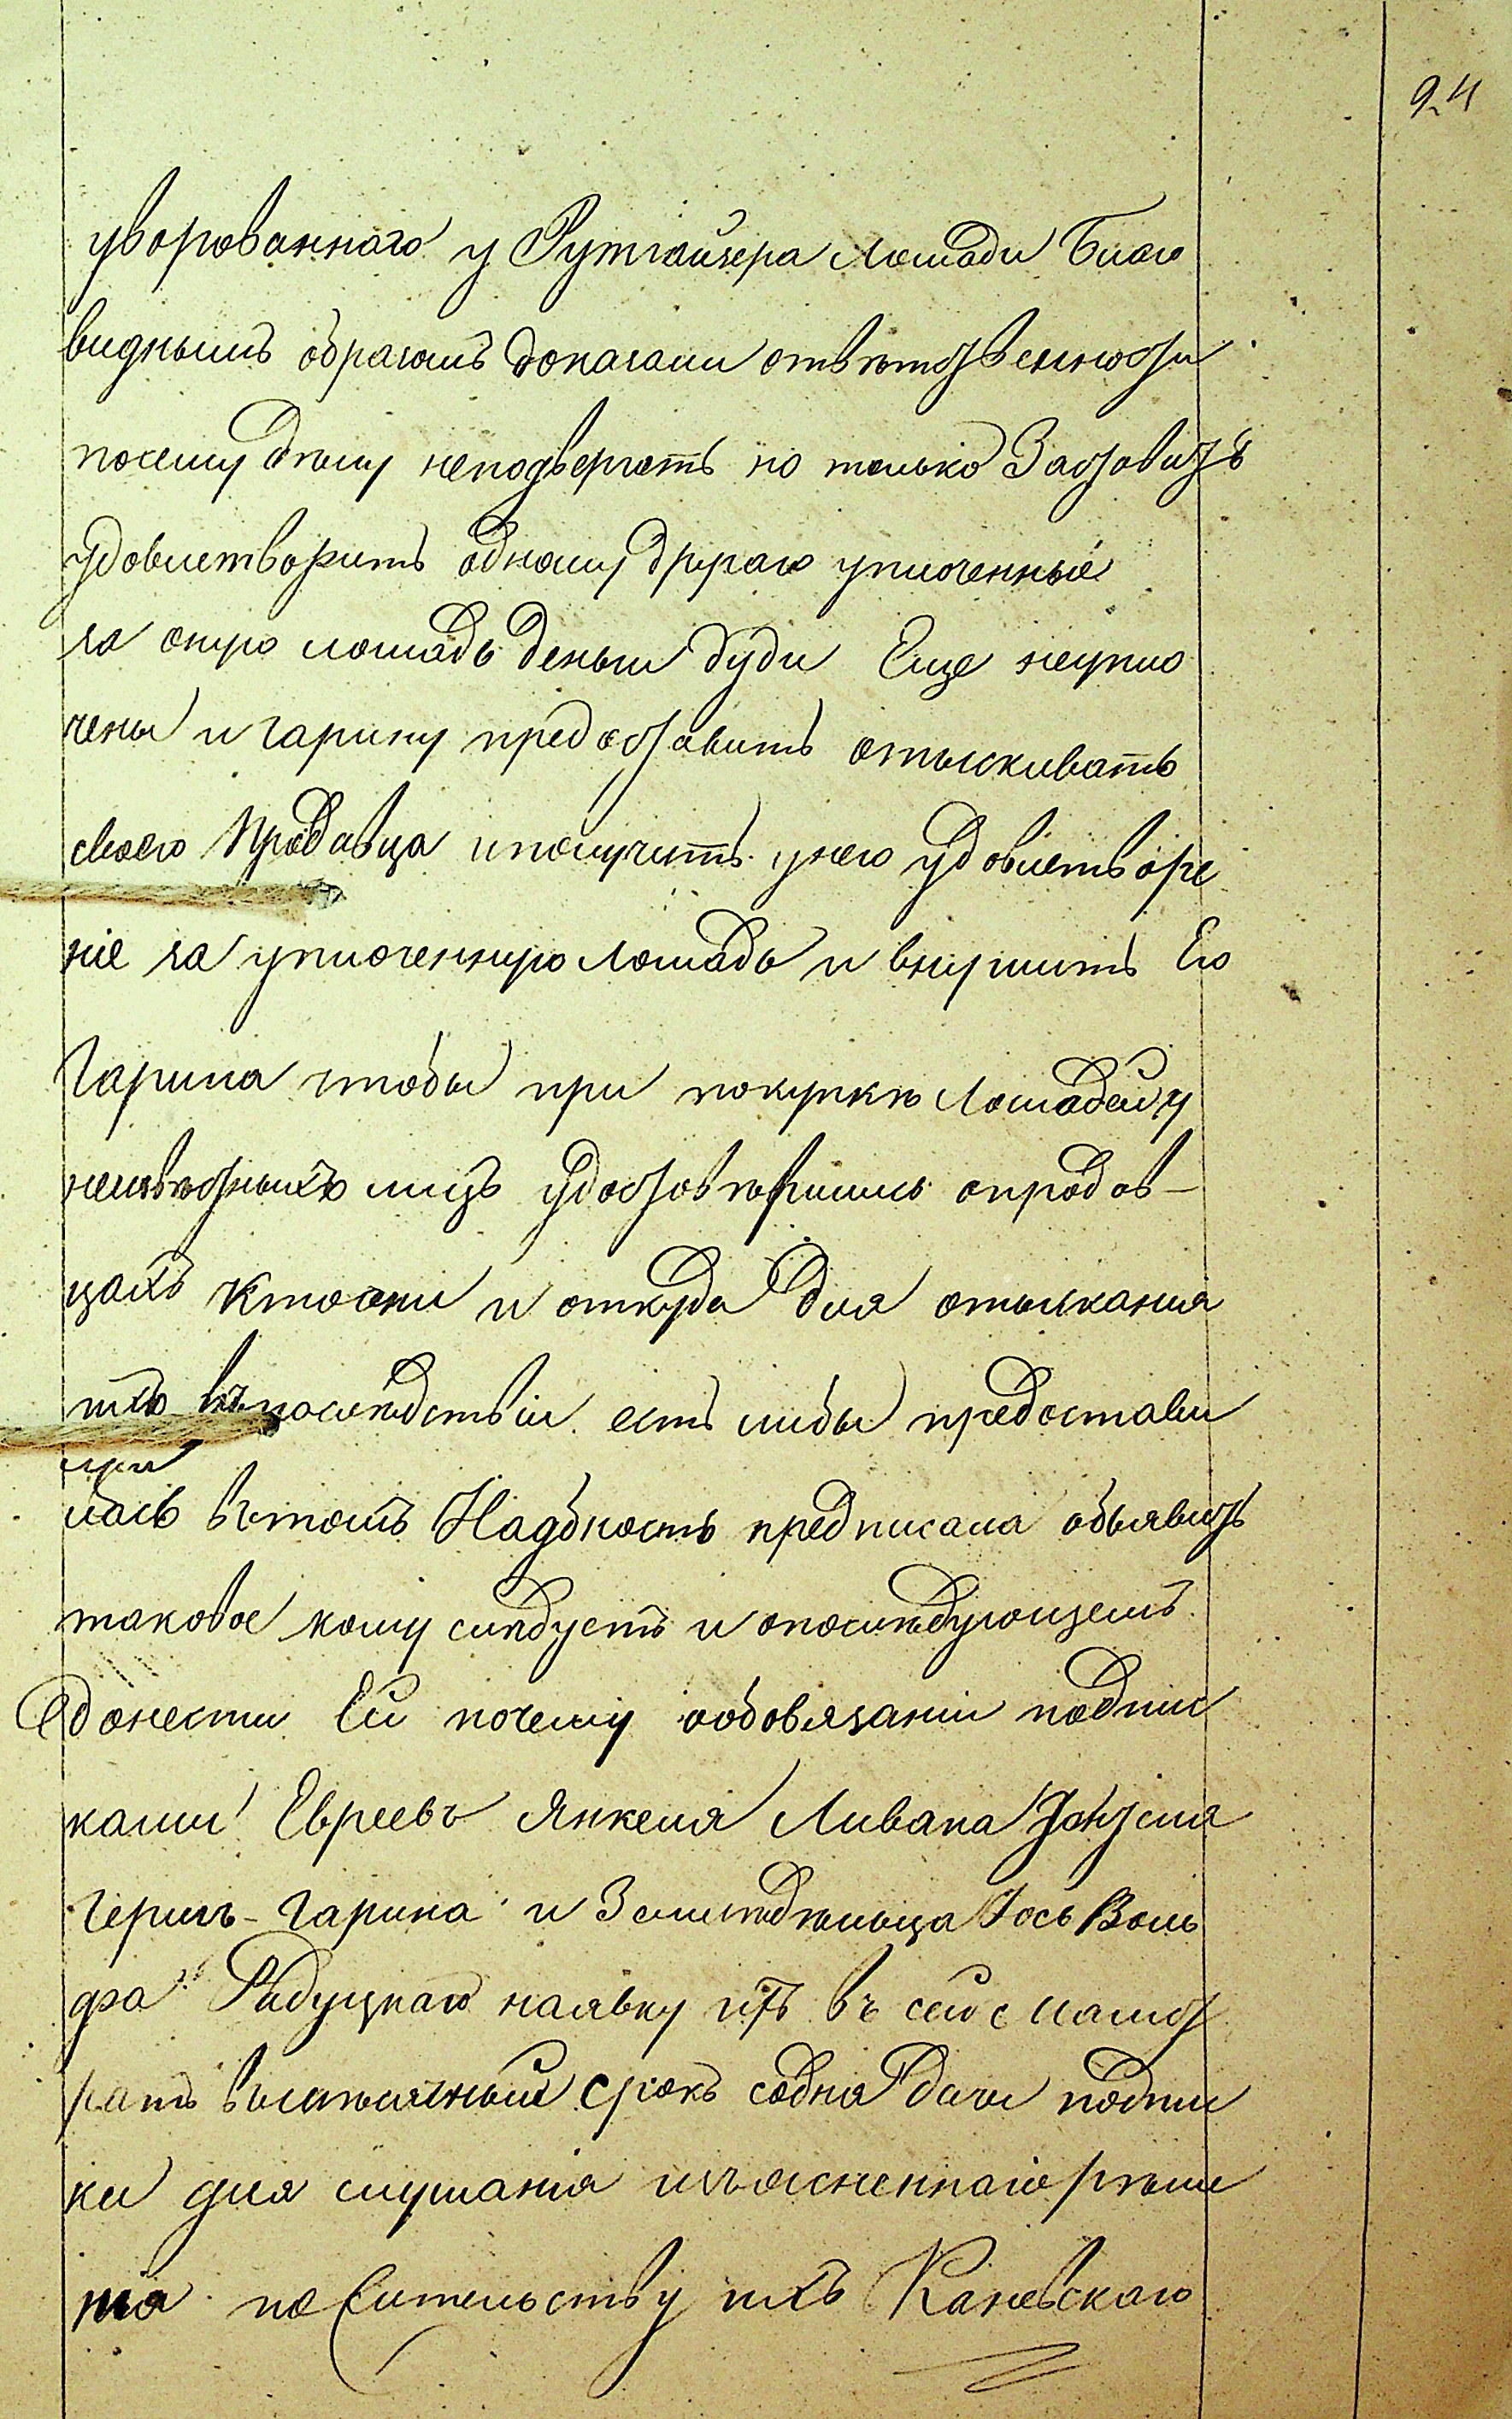 94
уворованнаго у Рутгайзера лошади благо
виднымъ образомъ доказали ответственности
посему делу неподвергать но только Заставить
удовлетворить одному другаго уплоченные
за оную лошадь деньги буди Еще неупло
чены и Гарину предоставить отыскивать
своего Продавца и получить унего удовлетворе
ніе за уплоченную лошадь и внушить Его
Гарина чтобы при покупкѣ лошадей у
неизвѣстныхъ лицъ удостовѣрились опродав-
цахъ кто они и откуда для отысканія
ихъ въпослѣдствіи есть либы представи
лась при вътомъ Надобность предписала объявить
таковое кому слѣдуетъ и опослѣдующемъ
донести Ей почему обовязаніи подпис
ками Евреевъ Янкеля Ливака
Герить-Гарина и Земледѣльца Іось Воль
фа Радуцкаго наявку ихъ въ сей с магист
ратъ вмѣсячный срокъ содня дачи подпис
ки для слушанія изъясненнаго рѣше
нія по жительству ихъ Каневскаго